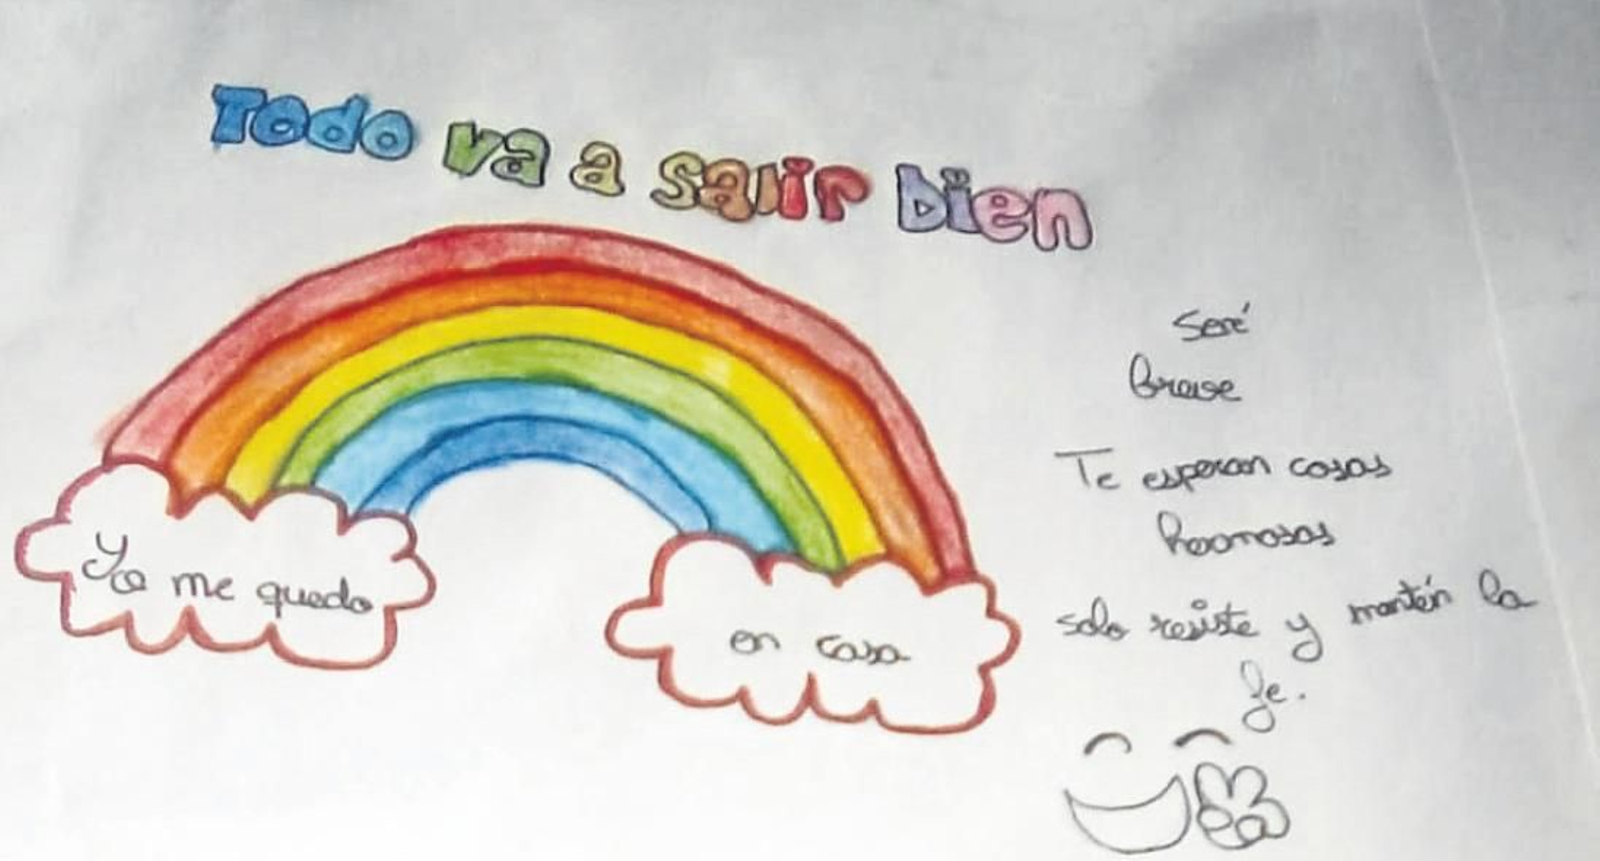 Todo va a salir bien
Yo me quedo
en casa
Seré
breve
Te esperan cosas
hermosas
solo resiste y mantén la
fe.